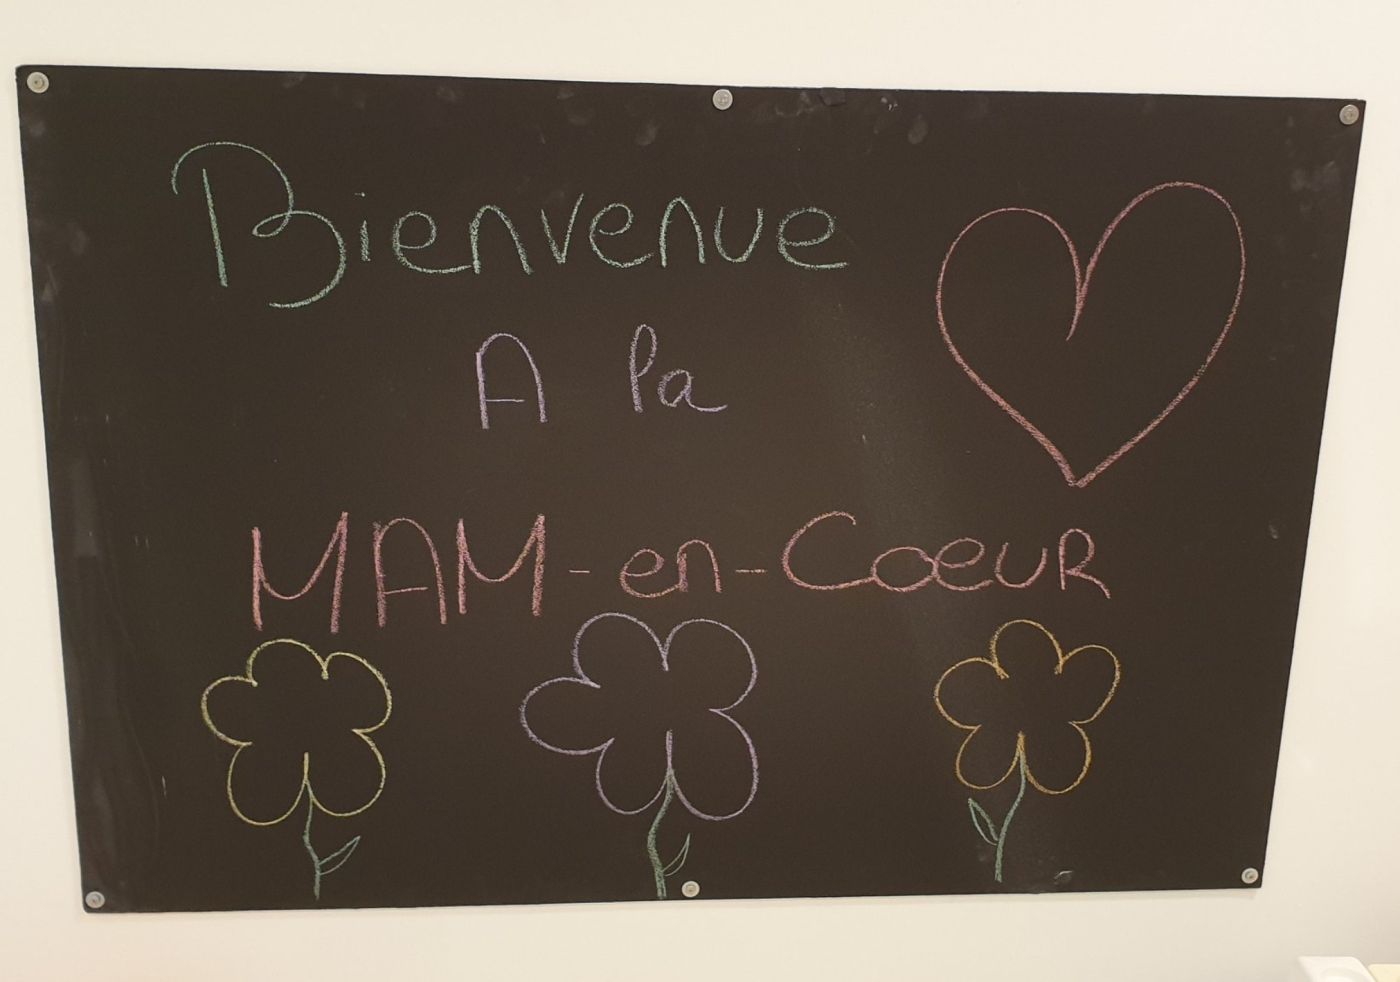 Bienvenue
A la
MAM-en-CoeuR